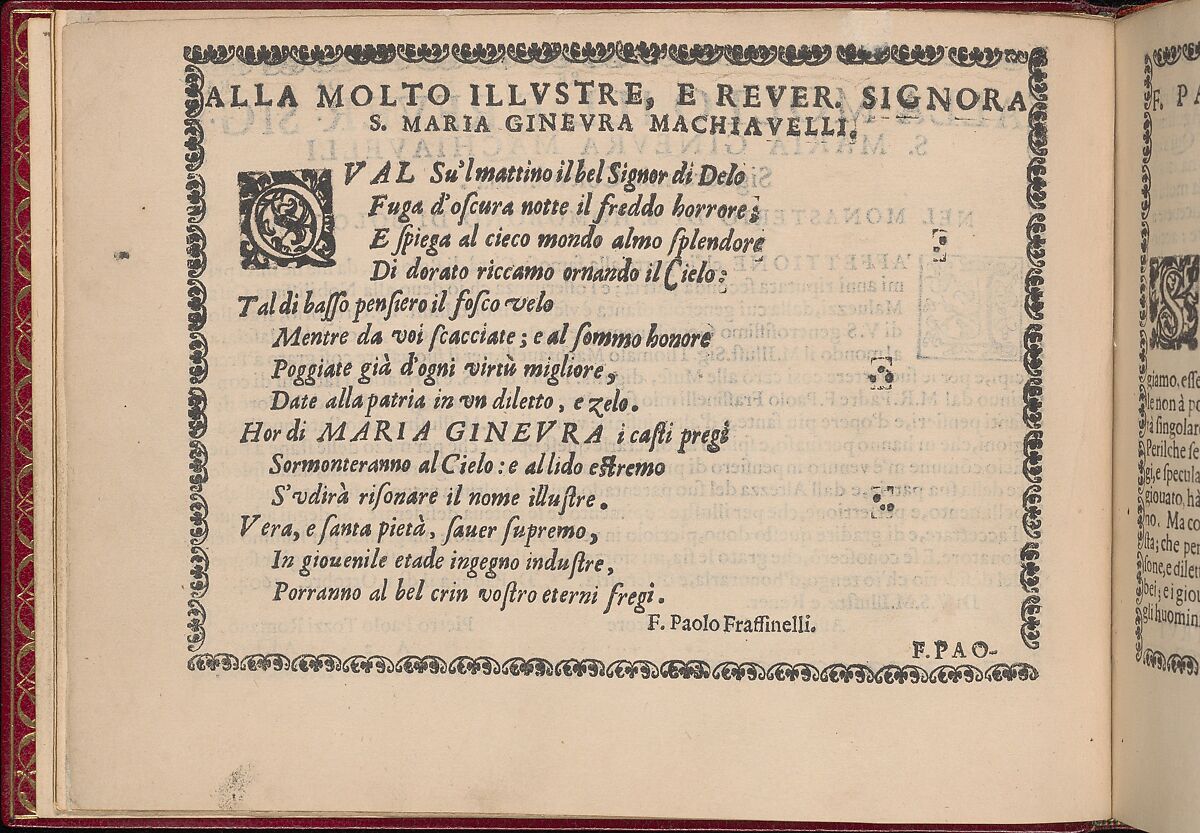 ALLA MOLTO ILLVSTRE, E REVER. SIGNORA
S. MARIA GINEVRA MACHIAVELLI.
QVAL Su'l mattino il bel Signor di Delo
Fuga d'oſcura notte il freddo horrore;
E ſpiega al cieco mondo almo ſplendore
Di dorato riccamo ornando il Cielo:
Tal di baſſo penſiero il foſco velo
Mentre da voi ſcacciate; e al ſommo honore
Poggiate già d'ogni virtù migliore,
Date alla patria in vn diletto, e zelo.
Hor di MARIA GINEVRA i caſti pregi
Sormonteranno al Cielo: e al lido eſtremo
S'vdirà riſonare il nome illuſtre.
Vera, e ſanta pietà, ſauer ſupremo,
In giouenile etade ingegno induſtre,
Porranno al bel crin voſtro eterni fregi.
F. Paolo Fraſſinelli.
F. PAO-
F. PA
giamo, eſſe
le non à po
rà ſingolare
Perilche ſe
gi, e ſpecula
giouato, ha
no. Ma co
ſta; che per
ſone, e dilet
bei; e i giou
gli huomin